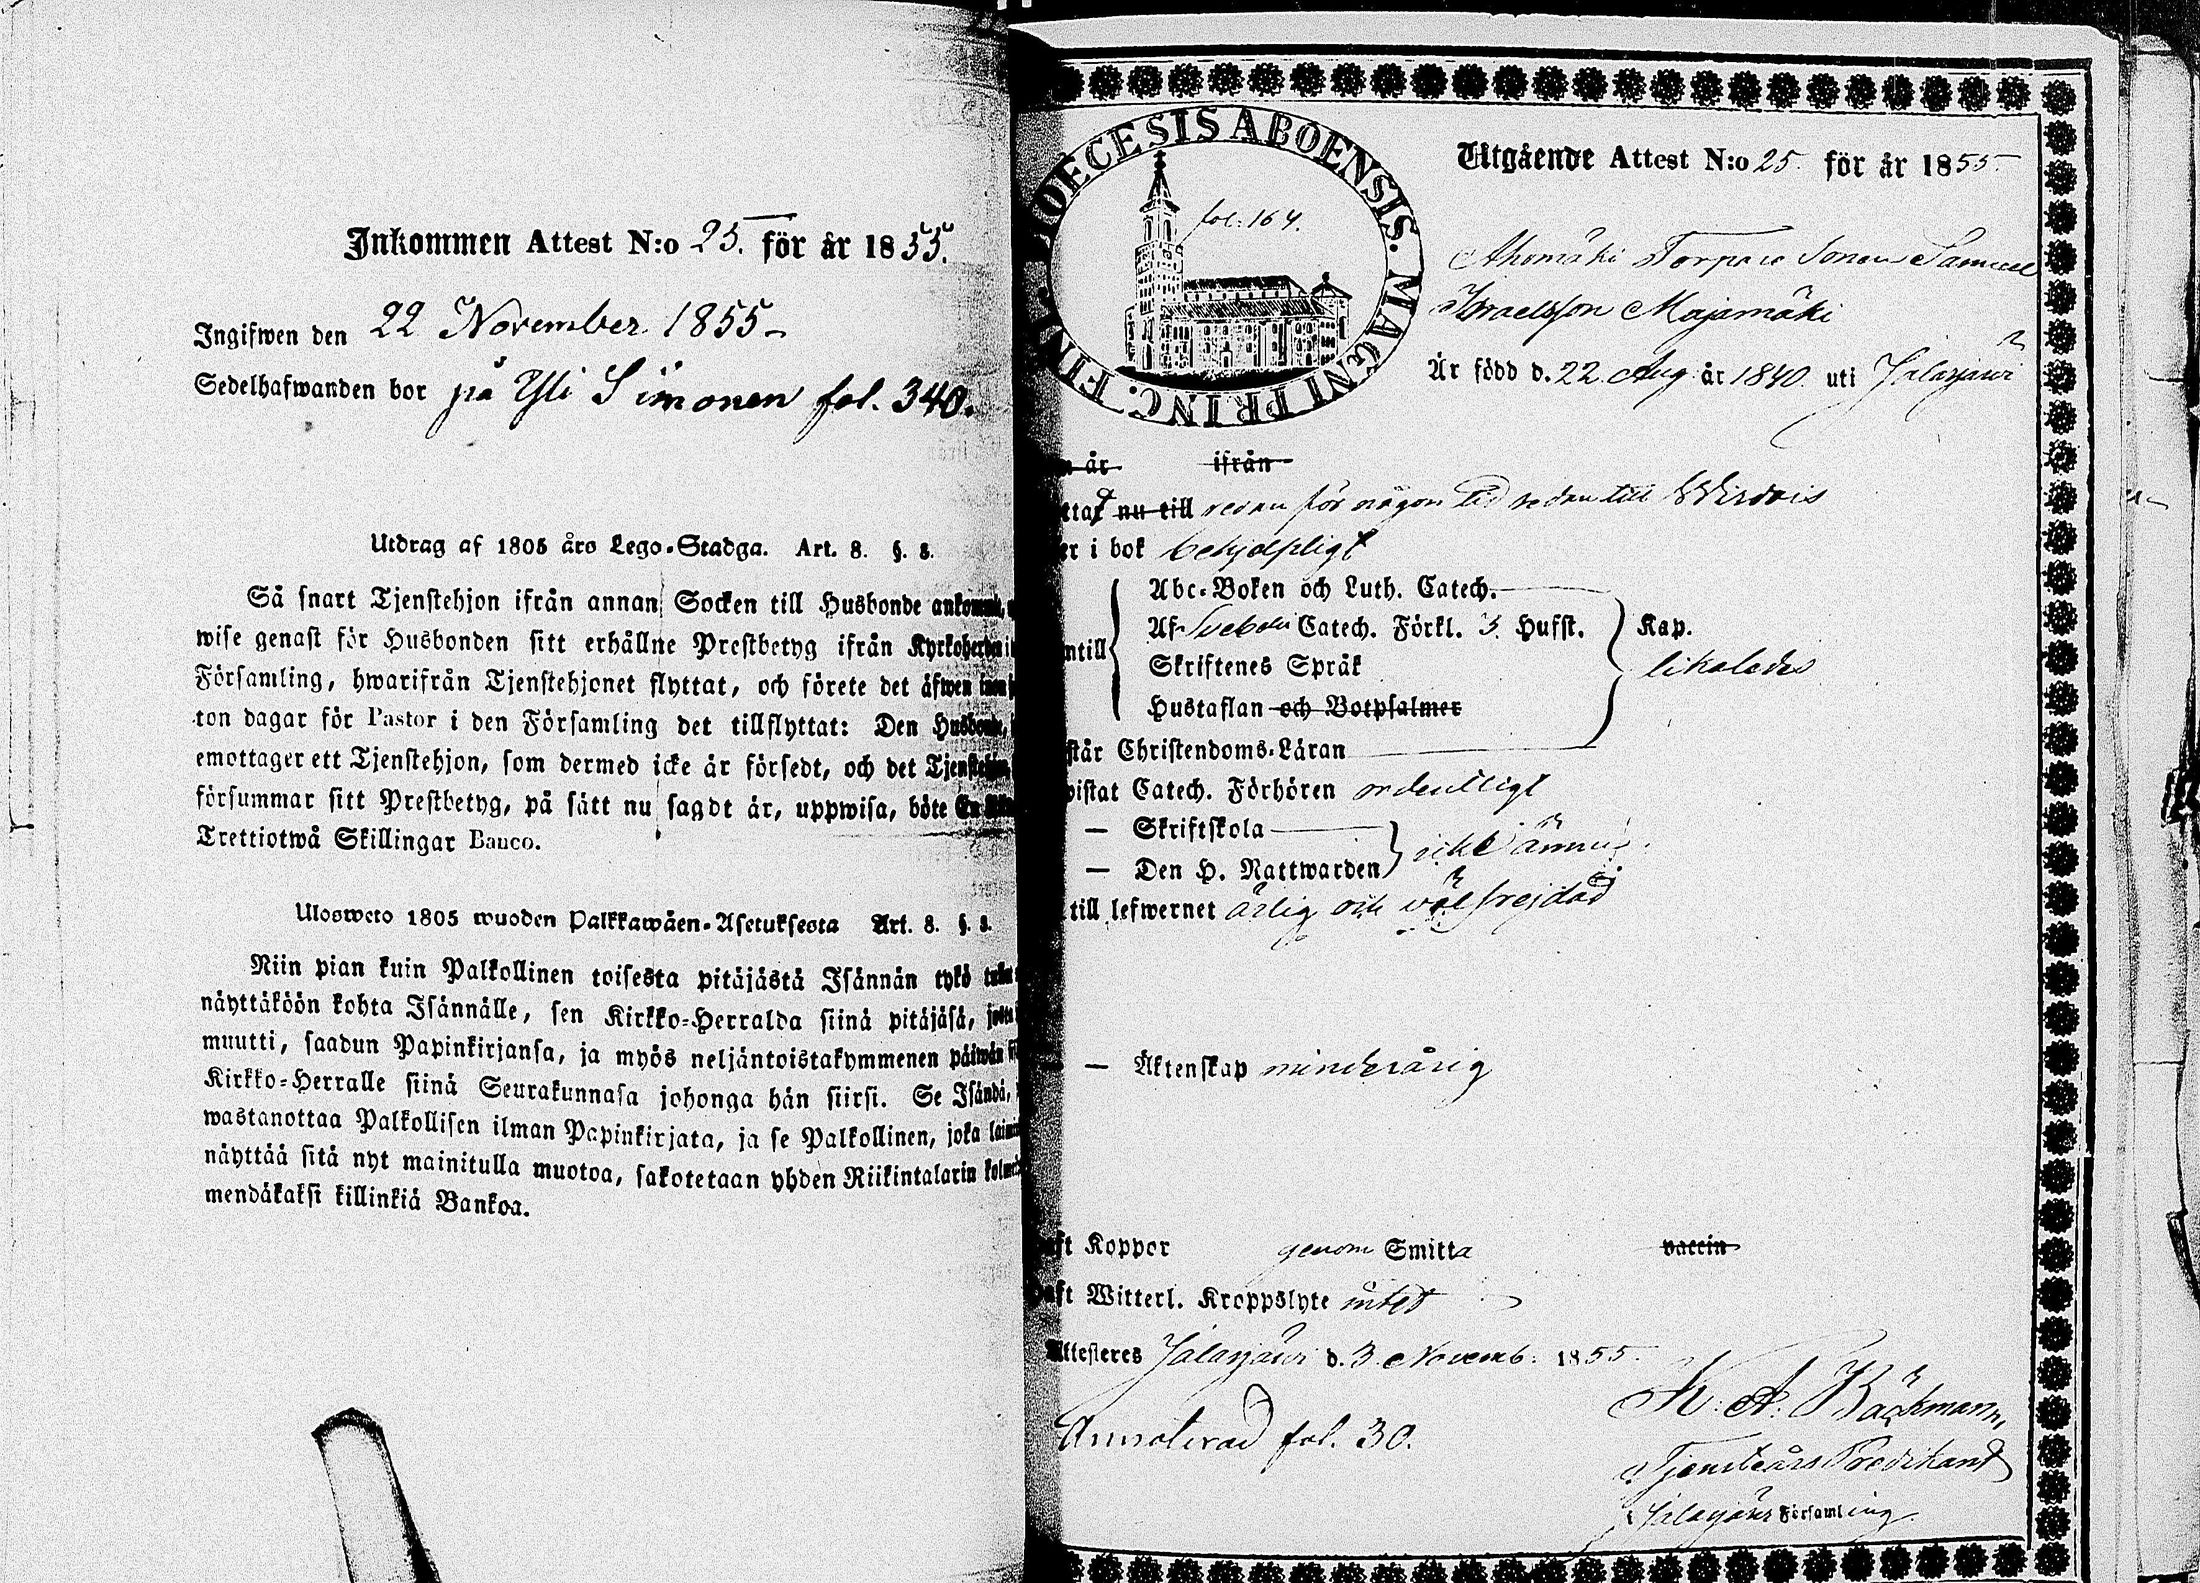 Inkommen Attest N:o 25. för år 1855.
Ingifwen den 22 November 1855
Sedelhafwanden bor på Yli Siimonen fol. 340.
Utdrag af 1805 års Lego-Stadga. Art. 8. §. 8.
Så snart Tjenstehjon ifrån annan Socken till Husbonde
wise genast för Husbonden sitt erhållne Prestbetyg ifrån
Församling, hwarifrån Tjenstehjonet flyttat, och förete det äfwen
ton dagar för Pastor i den Församling det tillflyttat: Den
emottager ett Tjenstehjon, som dermed icke är försedt, och det
försummar sitt Prestbetyg, på sätt nu sagdt är, uppwisa, böte
Trettiotwå Skillingar Banco.
Ulosweto 1805 wuoden Palkkawäen-Asetuksesta Art. 8. §. 8.
Niin pian kuin Palkollinen toisesta pitäjästä Isännän tykö
näyttäköön kohta Isännälle, sen Kirkko-Herralda siinä pitäjäsä,
muutti, saadun Papinkirjansa, ja myös neljäntoistakymmenen päiwän
Kirkko-Herralle siinä Seurakunnasa johonga hän siirsi. Se Isändä,
wastanottaa Palkollisen ilman Papinkirjata, ja se Palkollinen, joka
näyttää sitä nyt mainitulla muotoa, sakotetaan yhden Riikintalarin
mendäkaksi killinkiä Bankoa.
DIOECESIS ABOENSIS. MAGNI PRINC. FINL.
fol: 164.
Utgående Attest N:o 25 för år 1855
Ahomäki Torpare Sonen Samuel
Israelsson Majamäki
Är född d. 22 Aug. år 1840. uti Jalasjärvi
år ifrån
ttat nu till redan för någon tid sedan till Wirdois
er i bok behjelpligt
Abc-Boken och Luth. Catech.
Af Svebelii Catech. Förkl. 3 Hufst.
ntill
Skriftenes Språk
Hustaflan och Botpsalmer
Kap.
likaledes
står Christendoms-Läran
pistat Catech. Förhören ordentligt
— Skriftskola
— Den H. Nattwarden
icke ännu
till lefwernet ärlig och väl frejdad
— Äktenskap minderårig
aft Koppor genom Smitta vaccin
aft Witterl. Kroppslyte intet
Attesteres Jalasjärvi d. 3 Novemb. 1855.
K. A. Bäckmann,
Annoterad fol. 30.
Tjensteårs Predikant
Jalasjärvi Församling